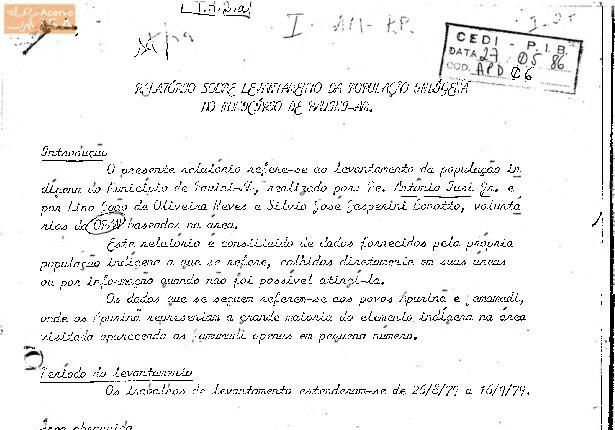 Acervo
I.4.2.a)
I - AM - RP.
CEDI - P. I. B.
DATA 27 / 05 / 86
COD. APD 06
RELATÓRIO SOBRE LEVANTAMENTO DA POPULAÇÃO INDÍGENA
NO MUNICÍPIO DE PAUINI-AM.
Introdução
O presente relatório refere-se ao levantamento da população in
dígena do Município de Pauini-AM, realizado por: Pe. Antonio Iasi Jr. e
por Lino João de Oliveira Neves e Silvio José Gasperini Bonotto, voluntá
rios da OPAN baseados na área.
Este relatório é constituido de dados fornecidos pela própria
população indígena a que se refere, colhidos diretamente em suas áreas
ou por informação quando não foi possível atingí-la.
Os dados que se seguem referem-se aos povos Apurinã e Jamamadi,
onde os Apurinã representam a grande maioria do elemento indígena na área
visitada aparecendo os Jamamadi apenas em pequeno número.
Período do Levantamento
Os trabalhos de levantamento estenderam-se de 26/8/79 a 16/9/79.